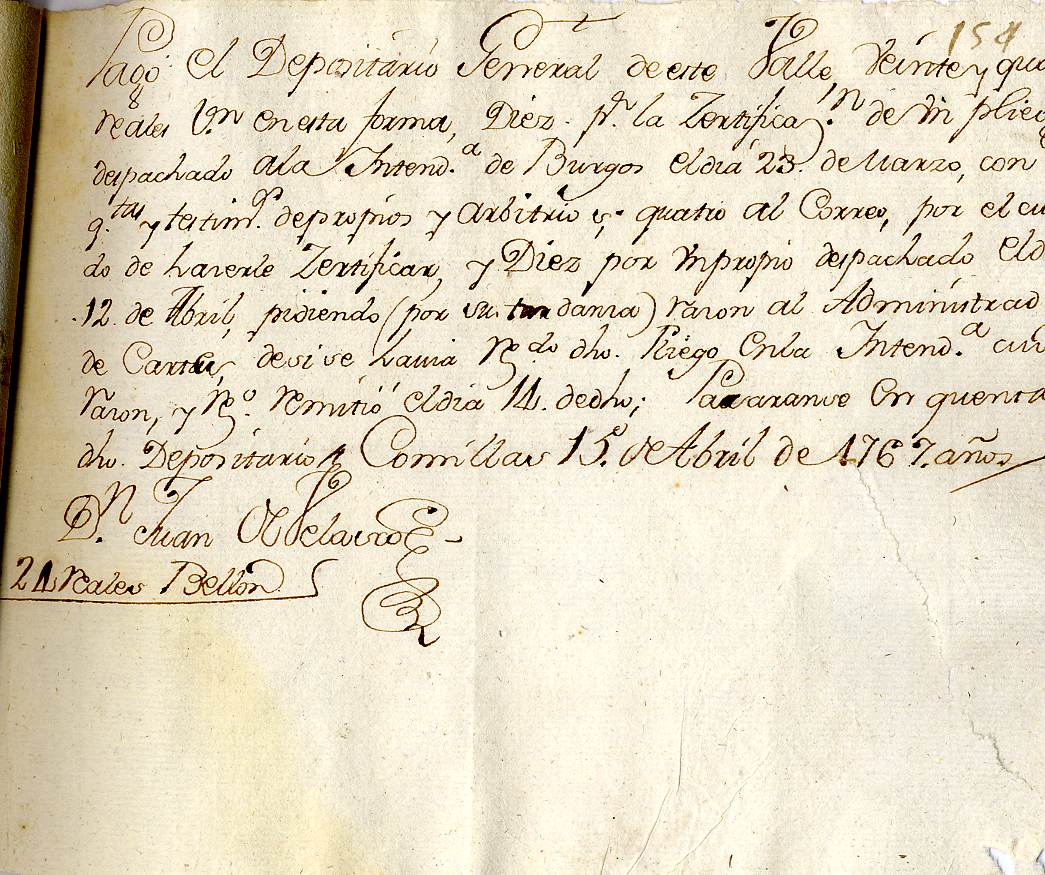 154
Pagó el Depositário General de este Valle, Veinte y qua
reales V.n en esta forma, Diez p.r la Zertifica.n de Vn plieg
despachado ala Intend.a de Burgos el dia 23. de Marzo, con
q.tas y testim.os de propios y Arbitrios; quatro al Correo, por el cui
do de haverle Zertificar, y Diez por Vn propio despachado el d
12. de Abril, pidiendo (por su tardanza) razon al Administrad
de Cartas, de si se havia rez.do dho. Pliego en la Intend.a cui
razon, y rez.o remitió el dia 14. de dho; Pasaranse en quenta
dho. Depositario, Comillas 15. de Abril de 1767. años
D.n Juan
24 reales Bellon